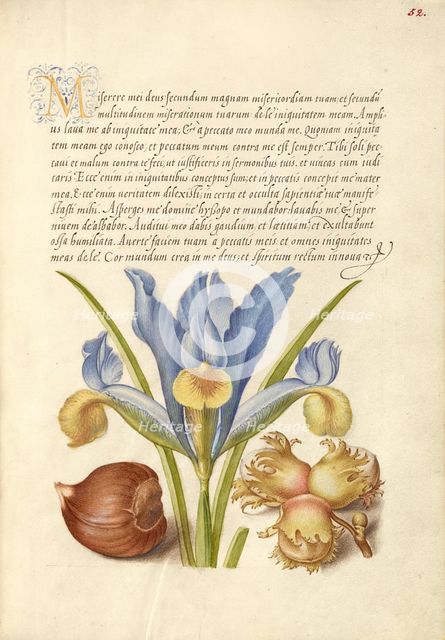 52.
Miserere mei deus secundum magnam misericordiam tuam; et secundũ
multitudinem miserationum tuarum dele iniquitatem meam. Ampli,
us laua me ab iniquitate mea; & a peccato meo munda me. Quoniam iniquita
tem meam ego conosco, et peccatum meum contra me est semper. Tibi soli pec
caui et malum contra te feci, ut iustificeris in sermonibus tuis, et uincas cum iudi
caris. Ecce enim in iniquitatibus conceptus sum; et in peccatis concepit me mater
mea. Ecce enim ueritatem dilexisti, incerta et occulta sapientiæ tuæ manife
stasti mihi. Asperges me domine hyssopo et mundabor: lauabis me & super
niuem dealbabor. Auditui meo dabis gaudium, et lætitiam; et exultabunt
ossa humiliata. Auerte faciem tuam a peccatis meis, et omnes iniquitates
meas dele. Cor mundum crea in me deus, et spiritum rectum innoua &c
Heritage
Heritage
C
Heritage
Heritage
Heritage